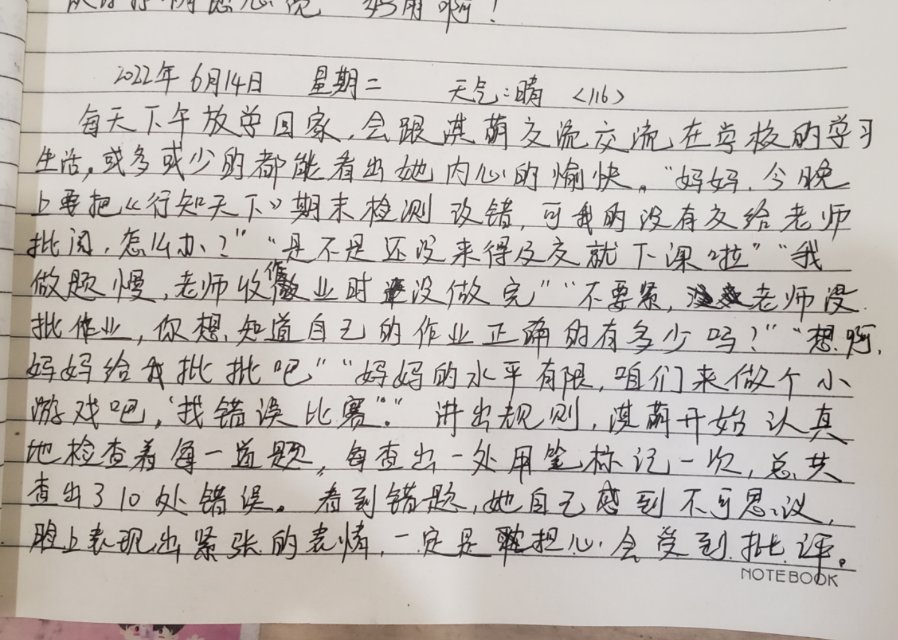 好用啊!
2022年 6月14日 星期二 天气:晴 <116>
每天下午放学回家,会跟淇萌交流交流在学校的学习
生活,或多或少的都能看出她内心的愉快。"妈妈,今晚
上要把《行知天下》期末检测改错,可我的没有交给老师
批阅,怎么办?" "是不是还没来得及交就下课啦" "我
做题慢,老师收作业时没做完" "不要紧,老师没
批作业,你想知道自己的作业正确的有多少吗?" "想啊,
妈妈给我批批吧" "妈妈的水平有限,咱们来做个小
游戏吧,'找错误比赛'。" 讲出规则,淇萌开始认真
地检查着每一道题,每查出一处用笔标记一次,总共
查出了10处错误。看到错题,她自己感到不可思议,
脸上表现出紧张的表情,一定是担心会受到批评。
NOTEBOOK